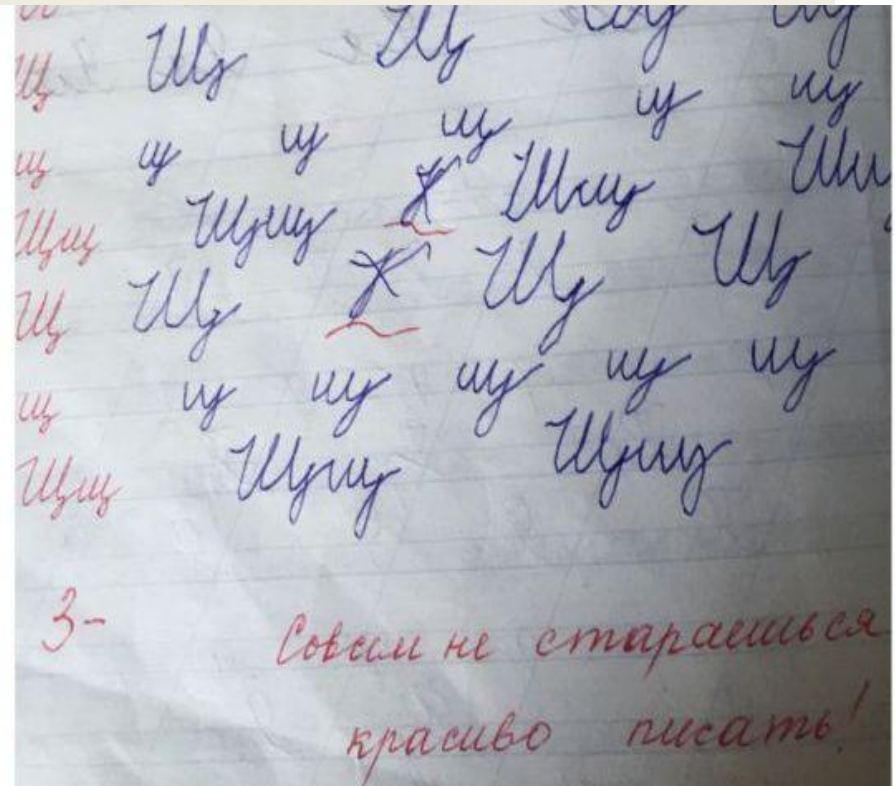 Щ Щ Щ
щ щ щ щ щ щ
Щщ Щщ Щщ Щщ
Щ Щ Щ Щ
щ щ щ щ щ щ
Щщ Щщ Щщ
3- Совсем не стараешься
красиво писать!